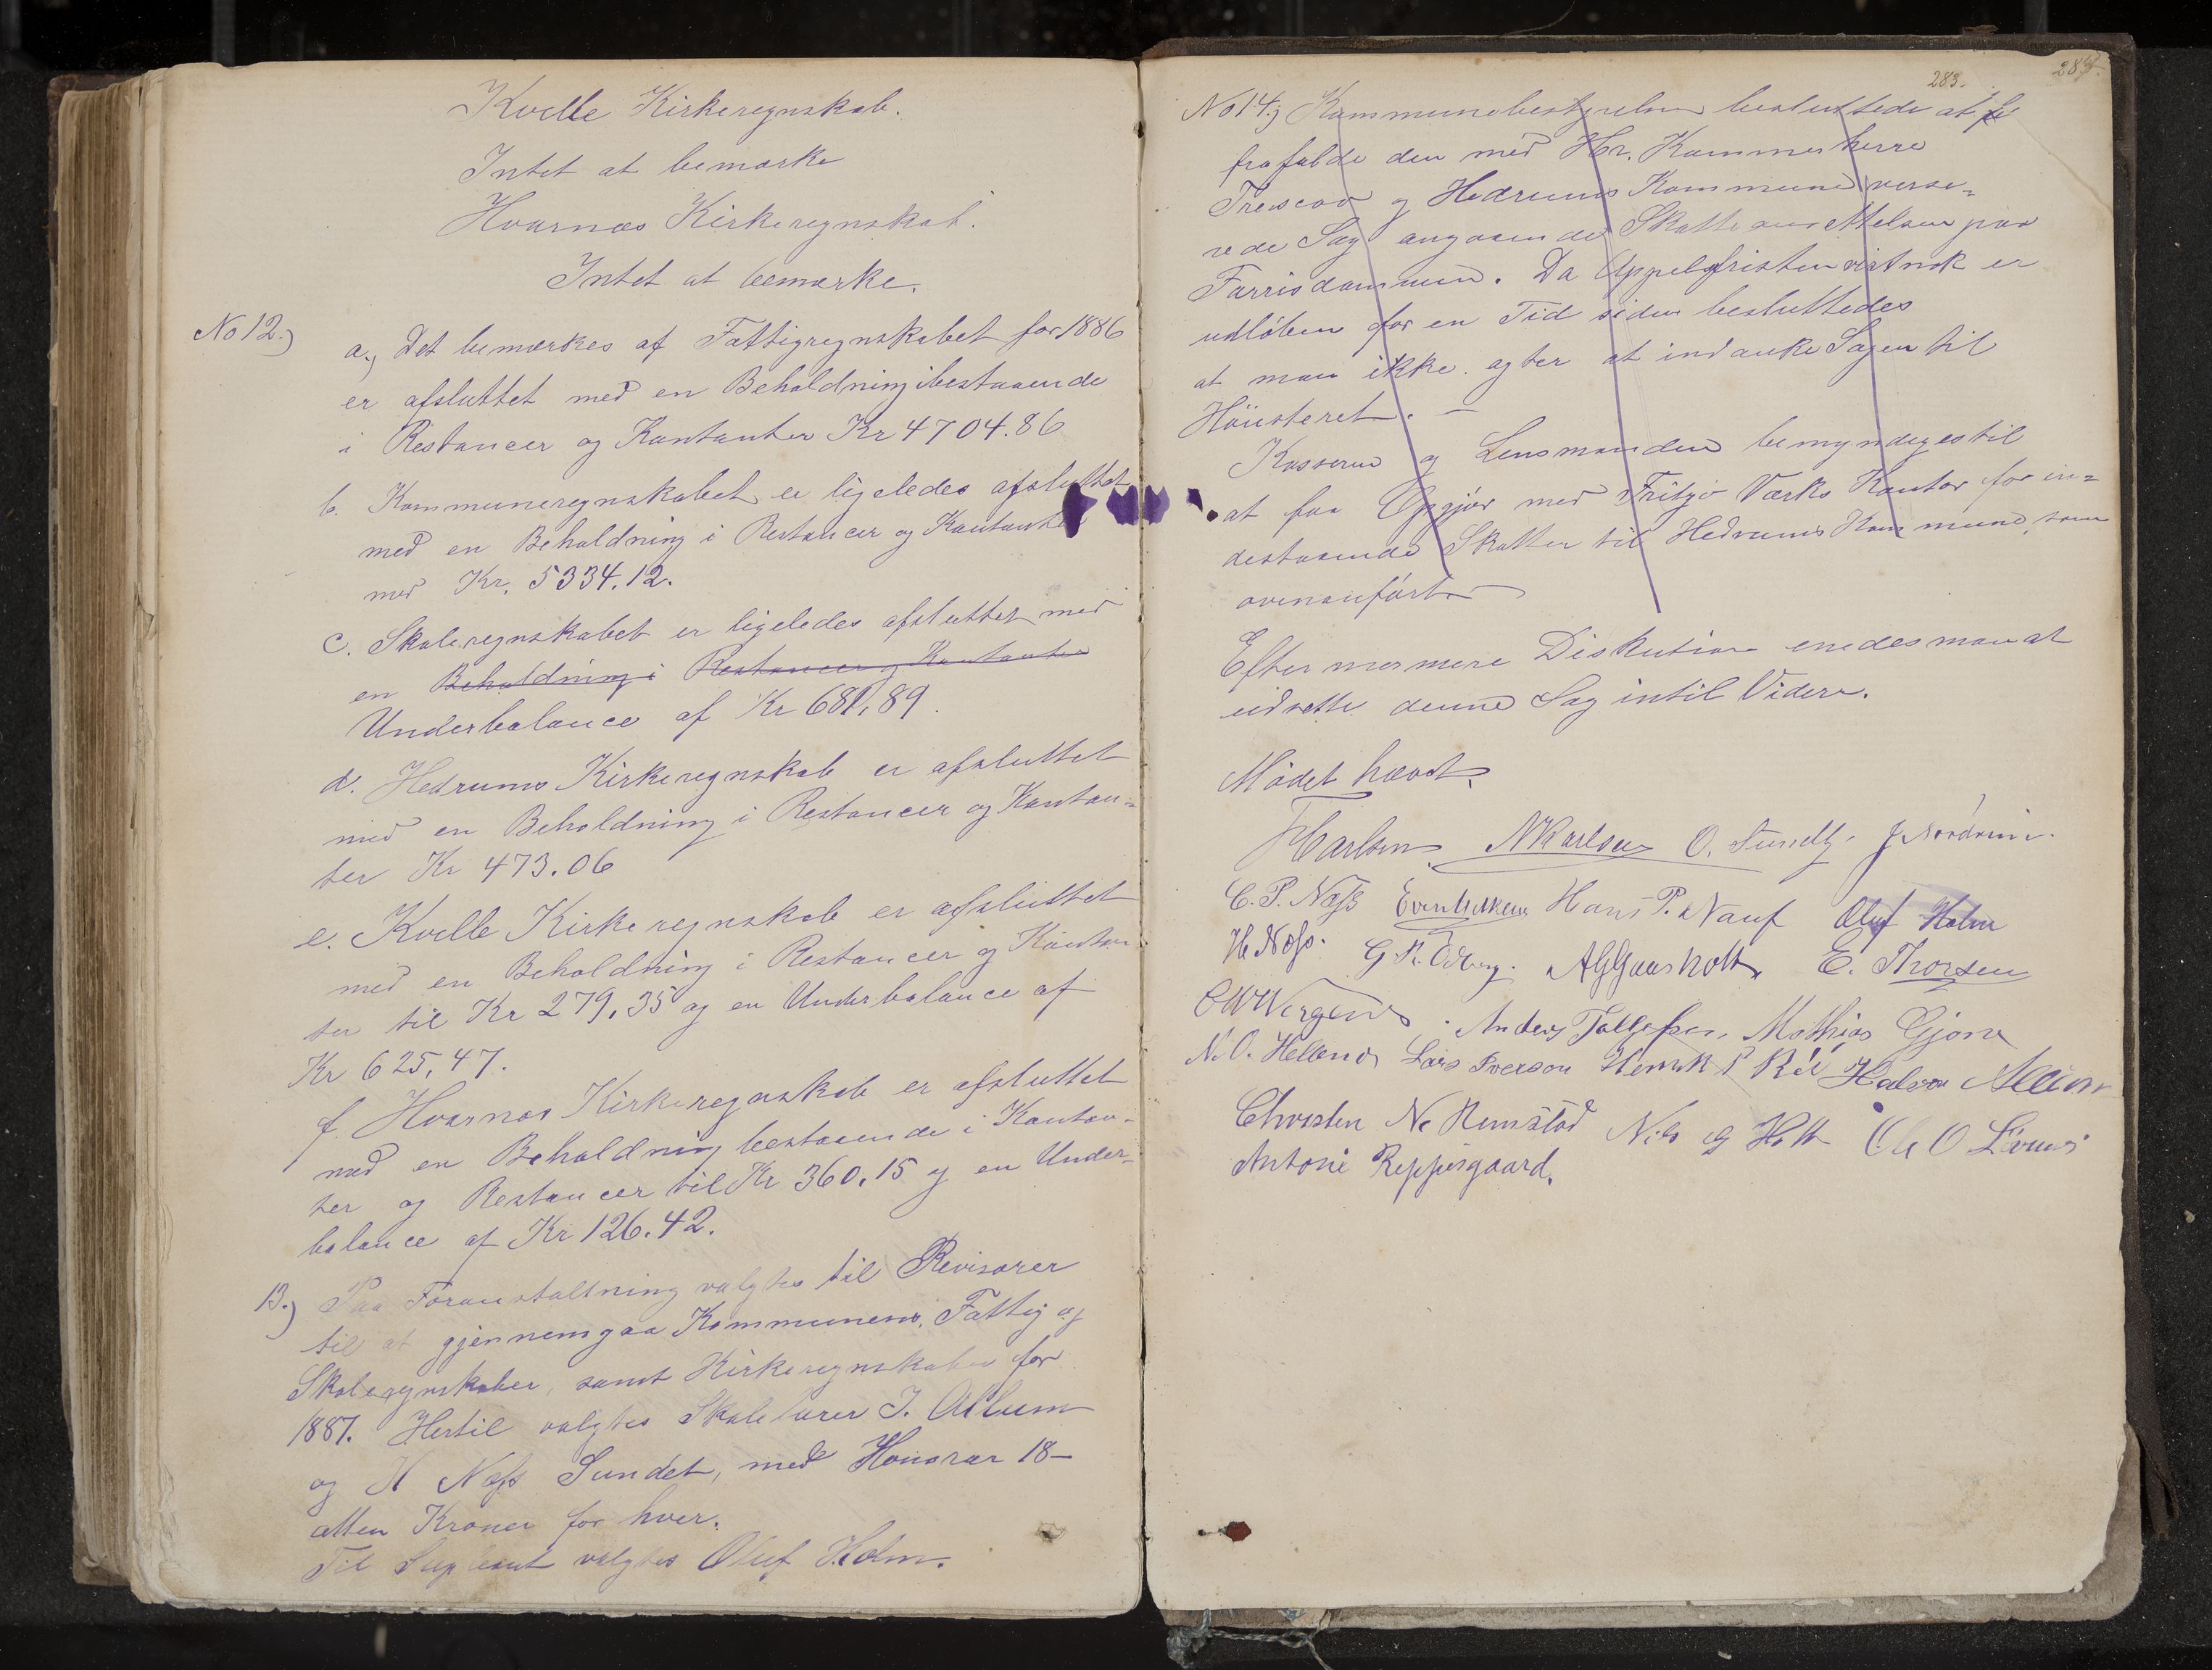 Kvelle Kirkeregnskab.
Intet at bemærke
Hvarnæs Kirkeregnskab.
Intet at bemærke.
No 12.)
a., Det bemærkes af Fattigregnskabet for 1886
er afsluttet med en Beholdning ibestaaende
i Restancer og Kontanter Kr 4704.86
b. Kommuneregnskabet er ligeledes afsluttet
med en Beholdning i Restancer og Kontanter
med Kr. 5334.12.
c. Skoleregnskabet er ligeledes afsluttet med
en Beholdning i Restancer og Kontanter
Underbalance af Kr 681,89.
d. Hedrums Kirkeregnskab er afsluttet
med en Beholdning i Restancer og Kontan=
ter Kr 473.06
e. Kvelle Kirkeregnskab er afsluttet
med en Beholdning i Restancer og Kontan
ter til Kr 279,35 og en Underbalance af
Kr 625,47.
f. Hvarnæs Kirkeregnskab er afsluttet
med en Beholdning bestaaende i Kontan-
ter og Restancer til Kr 360.15 og en Under-
balance af Kr 126.42.
13.) Paa Foranstaltning valgtes til Revisorer
til at gjennemgaa Kommunens, Fattig og
Skoleregnskaber, samt Kirkeregnskaber for
1887. Hertil valgtes Skolelærer J. Allum
og H Næss Sundet, med Honorar 18-
atten Kroner for hver.
Til Supleant valgtes Oluf Holm.
283.
No 14.) Kommunebestyrelsen besluttede at
frafalde den med Hr. Kammerherre
Trescow og Hedrums Kommune verse=
rede Sag angaaende Skatteansettelsen paa
Farrisdammen. Da Appelsfristen vistnok er
udløben for en Tid siden besluttedes
at man ikke agter at indanke Sagen til
Høiesteret. —
Kasserer og Lensmanden bemyndiges til
at faa Opgjør med Fritzø Værks Kontor for in=
destaaende Skatter til Hedrums Kommune, som
ovenanført.
Efter nærmere Diskution enedes man at
udsette denne Sag intil Videre.
Mødet hævet.
Karlsen NKarlsen O. Sundby J Nordrum.
C. P. Næss Hans P. Nauf Oluf Holm
H Næss. G K. Edberg. AGGaasholt, E. Thorsen
Anders Tollefsen, Mathias Gjone
N. O. Helland Lars Iverson Henrik Halvor Allum
Christen N. Rimstad Nils G Holt Ole O
Antoni Reppesgaard.